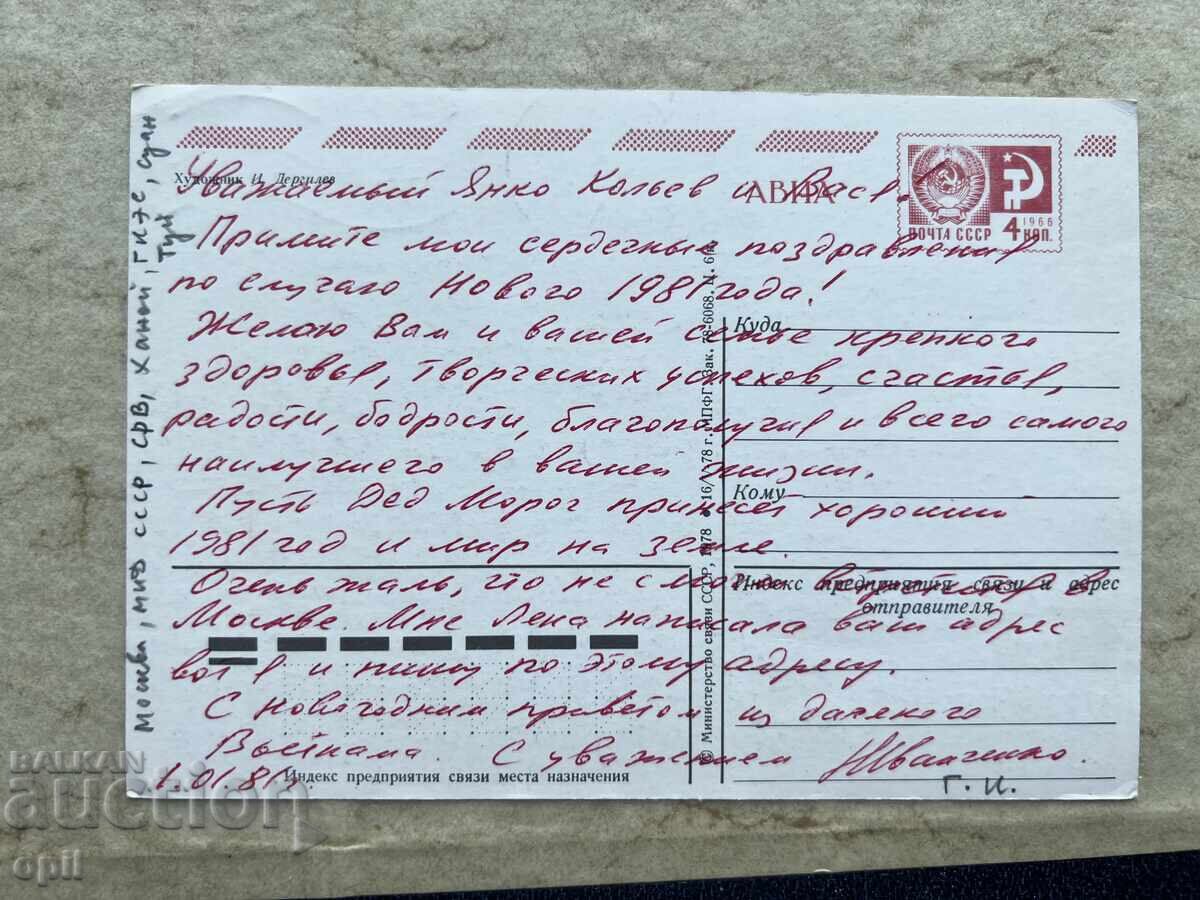 Художник И. Дергилев
АВИА
ПОЧТА СССР
1966
4 КОП.
Уважаемый Янко Кольев и
Примите мои сердечные поздравления
по случаю Нового 1981 года!
Желаю Вам и вашей семье крепкого
здоровья, творческих успехов, счастья,
радости, бодрости, благополучия и всего самого
наилучшего в вашей жизни.
Пусть Дед Мороз принесет хороший
1981 год и мир на земле.
Очень жаль, что не смогли
Москве. Мне Лена написала ваш адрес
вот я и пишу по этому адресу.
С новогодним приветом из далекого
Вьетнама. С уважением Иванченко.
1.01.81 г.
Г. И.
Москва, МИД СССР, СРВ, Ханой, ГКЭС,
Куда
Кому
Индекс предприятия связи и адрес
отправителя
Индекс предприятия связи места назначения
© Министерство связи СССР, 1978
78 г. МПФГ. Зак. 78-6068. Ц. 6 к.
BALKAN
auction
opil